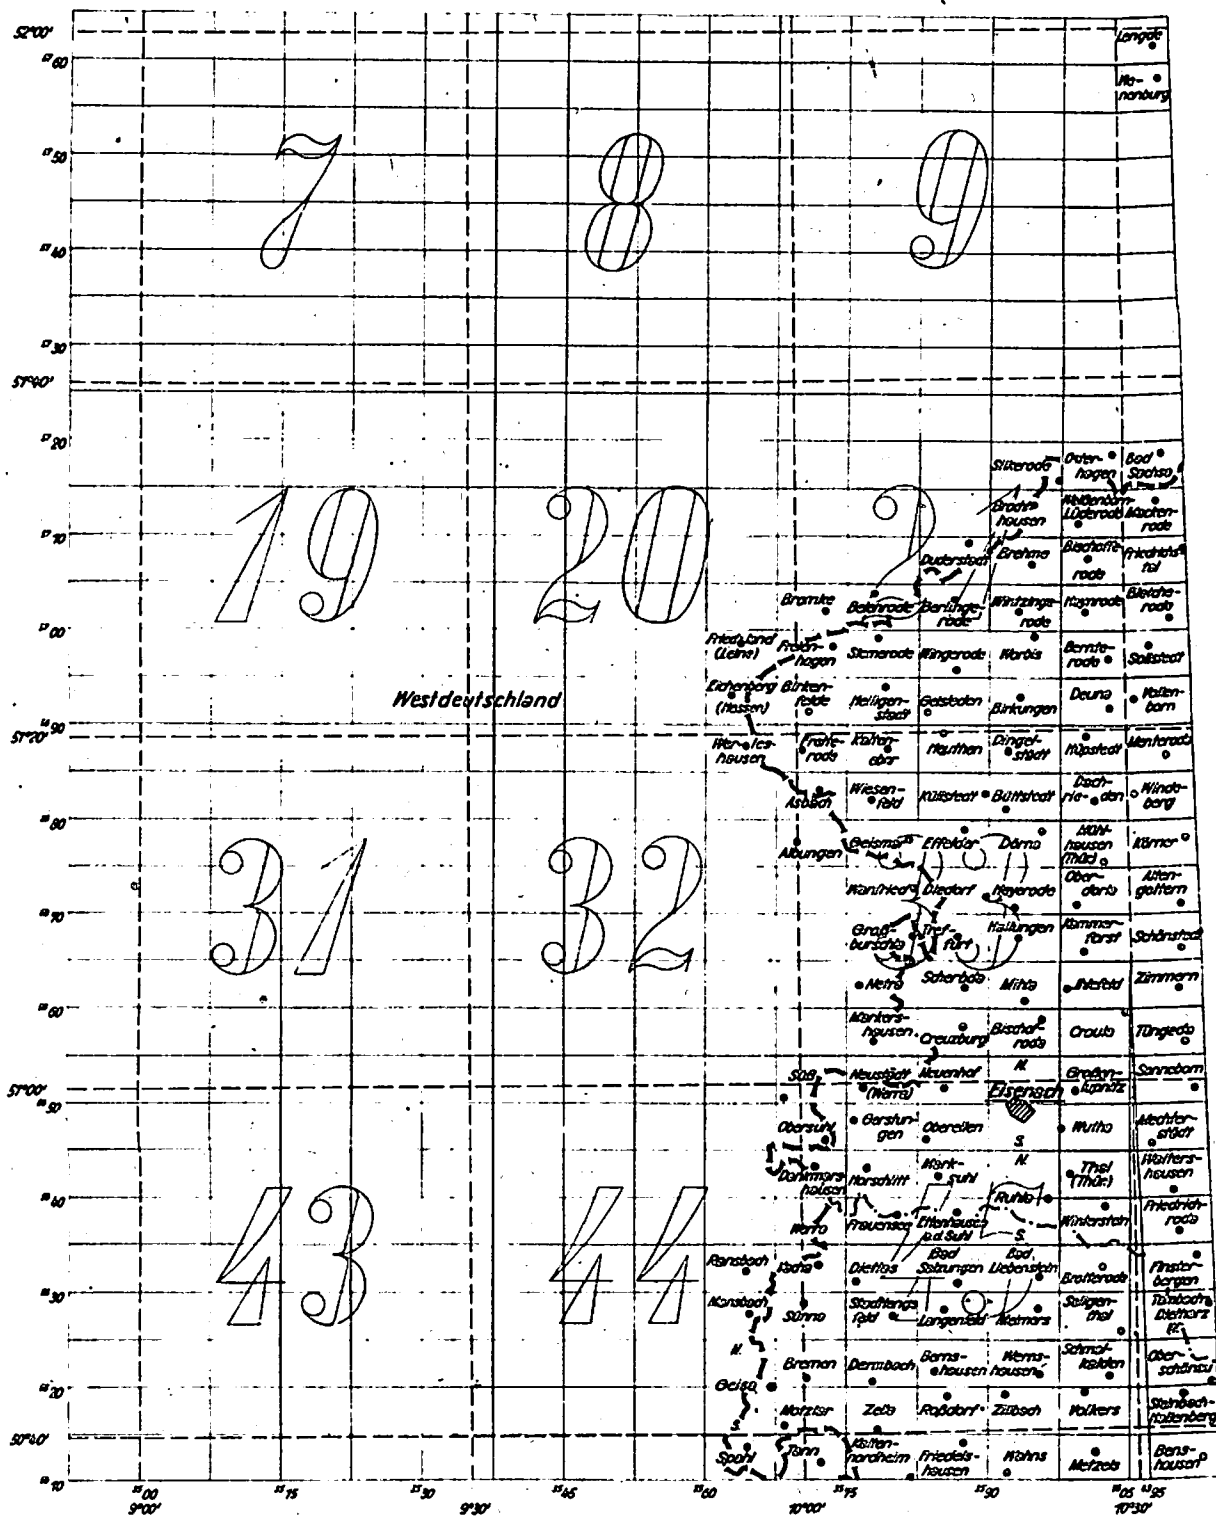 52°00'
Lengde
57 60
Wa-
nenburg
57 50
7
8
9
57 40
57 30
51°40'
57 20
Silkerode
Oster-
hagen
Bad
Sachsa
19
20
21
Broch-
hausen
Weißenborn-
Lüderode
Macken-
rode
57 10
Duderstadt
Brehme
Bischoffe-
rode
Friedrichs-
tal
Bremke
Beienrode
Berlinge-
rode
Wintzinge-
rode
Haynrode
Bleiche-
rode
57 00
Friedland
(Leine)
Freien-
hagen
Siemerode
Wingerode
Worbis
Bernte-
rode
Sollstedt
Westdeutschland
Eichenberg
(Hessen)
Birken-
felde
Heiligen-
stadt
Geisleden
Birkungen
Deuna
Vollen-
born
56 90
51°20'
Wer-les-
hausen
Frette-
rode
Kalten-
eber
Heuthen
Dingel-
städt
Hüpstedt
Menterode
Asbach
Wiesen-
feld
Küllstedt
Büttstedt
Dach-
rie-den
Winde-
berg
56 80
Albungen
Geismar
Effelder
Dörna
Mühl-
hausen
(Thür)
Körner
31
32
33
Wanfried
Diedorf
Heyerode
Ober-
dorla
Alten-
gottern
56 70
Groß-
burschla
Tref-
furt
Hallungen
Kammer-
forst
Schönstedt
Netra
Scherbda
Mihla
Ihlefeld
Zimmern
56 60
Markers-
hausen
Creuzburg
Bischof-
roda
Craula
Tüngeda
Süß
Neustädt
(Werra)
Neuenhof
N.
Großen-
lupnitz
Sonneborn
51°00'
56 50
Eisenach
Obersuhl
Gerstun-
gen
Oberellen
S.
Wutha
Mechter-
städt
Dankmars-
hausen
Horschlitt
Mark-
suhl
N.
Thal
(Thür.)
Walters-
hausen
56 40
43
44
45
Werra
Frauensee
Ettenhausen
a.d. Suhl
Ruhla
S.
Winterstein
Friedrich-
roda
Ransbach
Vacha
Dietlas
Bad
Salzungen
Bad
Liebenstein
Brotterode
Finster-
bergen
56 30
Mansbach
Sünna
Stadtlengs-
feld
Langenfeld
Meimers
Seligen-
thal
Tambach-
Dietharz
W.
N.
Bremen
Dermbach
Berns-
hausen
Werns-
hausen
Schmal-
kalden
Ober-
schönau
56 20
Geisa
Motzlar
Zella
Roßdorf
Zillbach
Volkers
Steinbach-
Hallenberg
50°40'
S.
Spahl
Tann
Kalten-
nordheim
Friedels-
hausen
Wahns
Metzels
Bens-
hausen
56 10
35 00
35 15
35 30
35 45
35 60
35 75
35 90
36 05
43 95
9°00'
9°30'
10°00'
10°30'